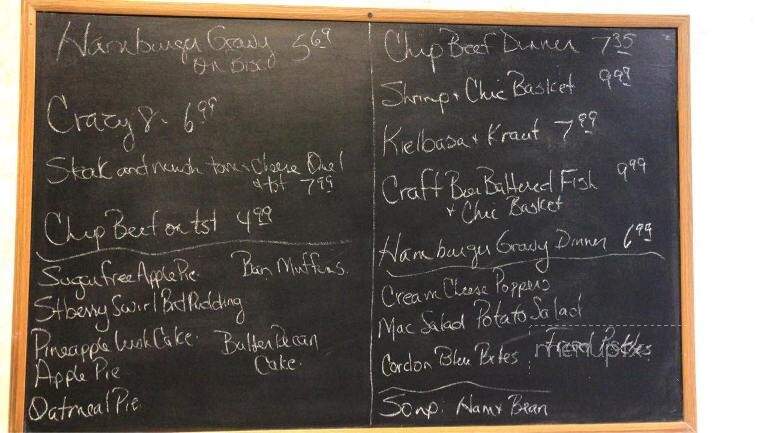 Hamburger Gravy 5.69
on Bisc
Crazy 8. 6.99
Steak and mush tom & Cheese Oml
& tst 7.99
Chip Beef on tst 4.99
Sugar free Apple Pie. Bran Muffins.
Stberry Swirl Brd Pudding
Pineapple Cake. Butter Pecan
Cake.
Apple Pie
Oatmeal Pie.
Chip Beef Dinner 7.35
Shrimp & Chic Basket 9.99
Kielbasa & Kraut 7.99
Craft Beer Battered Fish 9.99
& Chic Basket
Hamburger Gravy Dinner 6.99
Cream Cheese Poppers
Mac Salad Potato Salad
Cordon Bleu Bites Fried Pickles
menupix
Soup. Ham & Bean